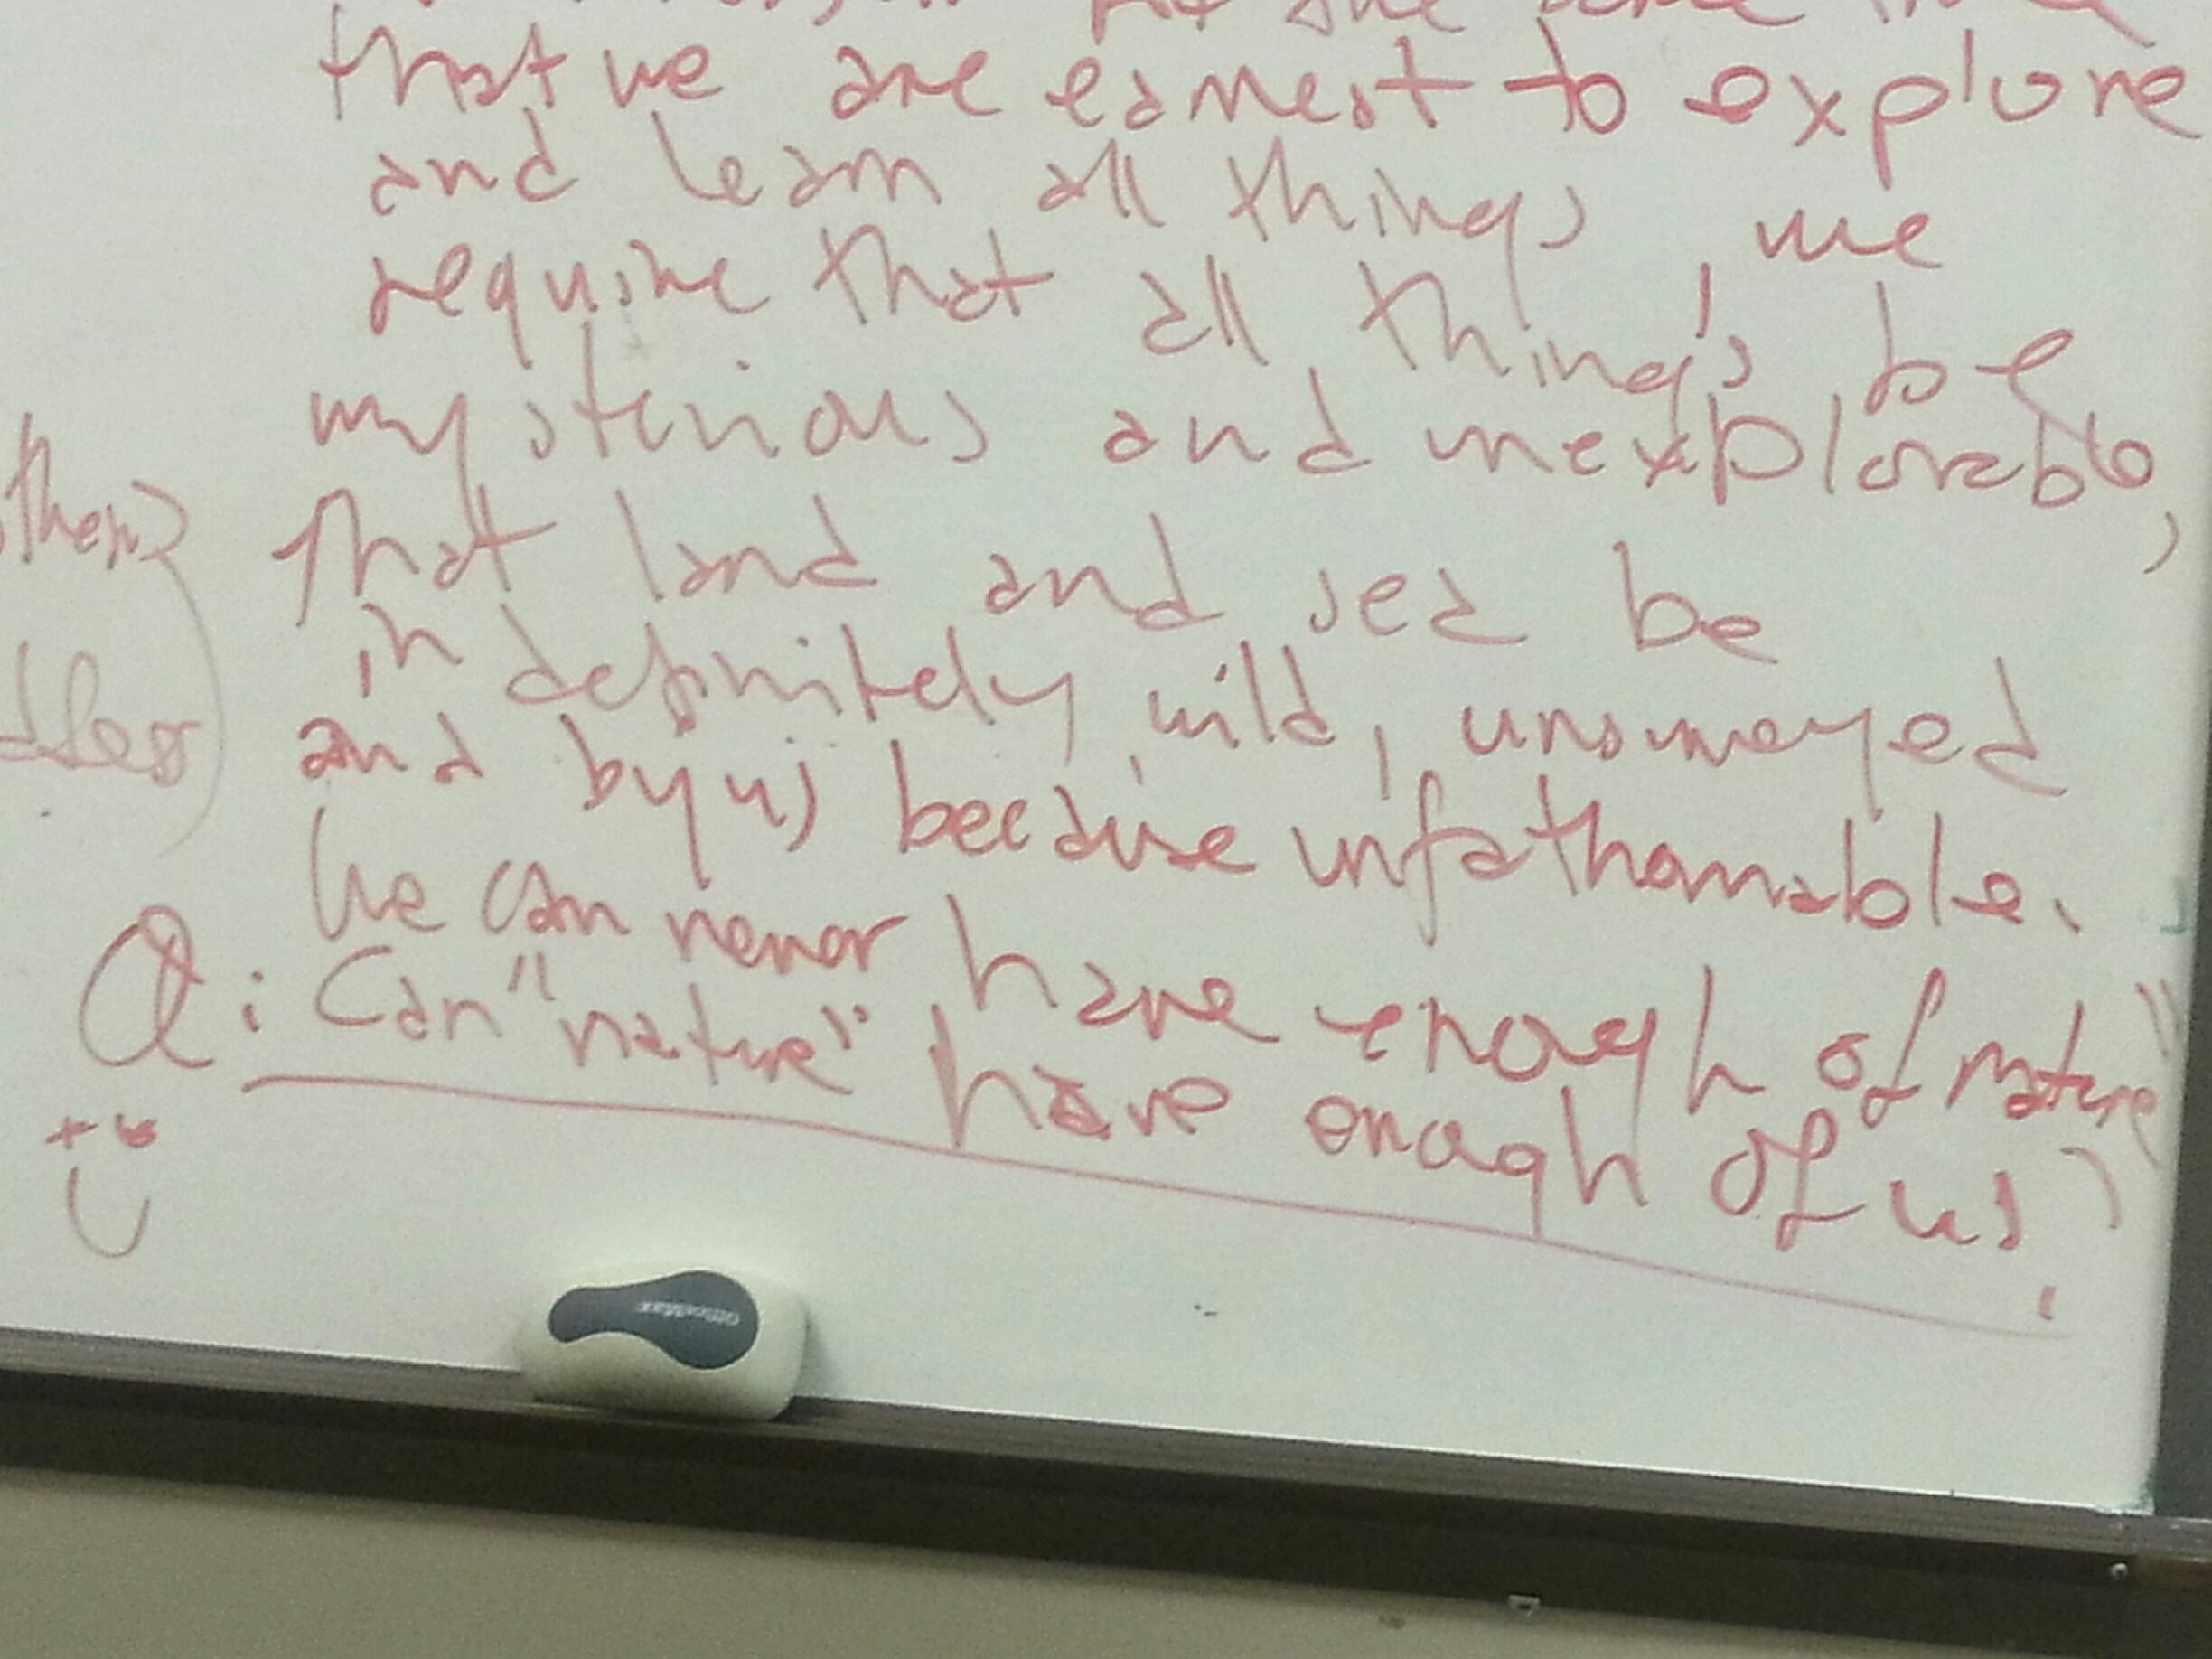 At the same time
that we are earnest to explore
and learn all things, we
require that all things be
mysterious and inexplorable,
that land and sea be
indefinitely wild, unsurveyed
and by us because unfathomable.
We can never have enough of nature"
Q: Can "nature" have enough of us?
OfficeMax